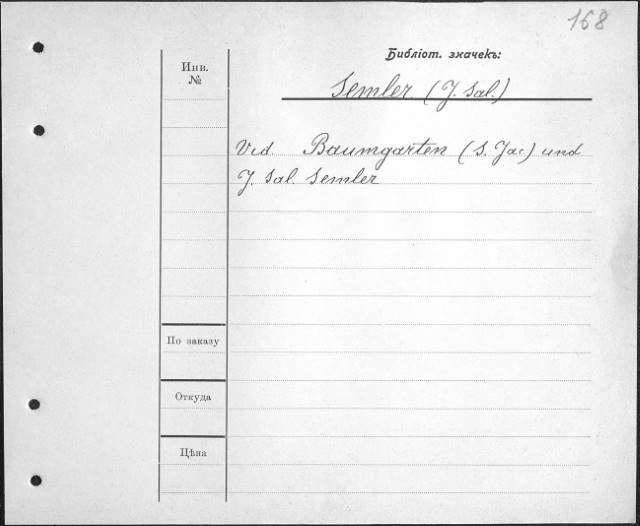 168
Библіот. значекъ:
Инв.
№
Semler (J. Sal.)
Vid. Baumgarten (S. Jac.) und
J. Sal. Semler
По заказу
Откуда
Цѣна